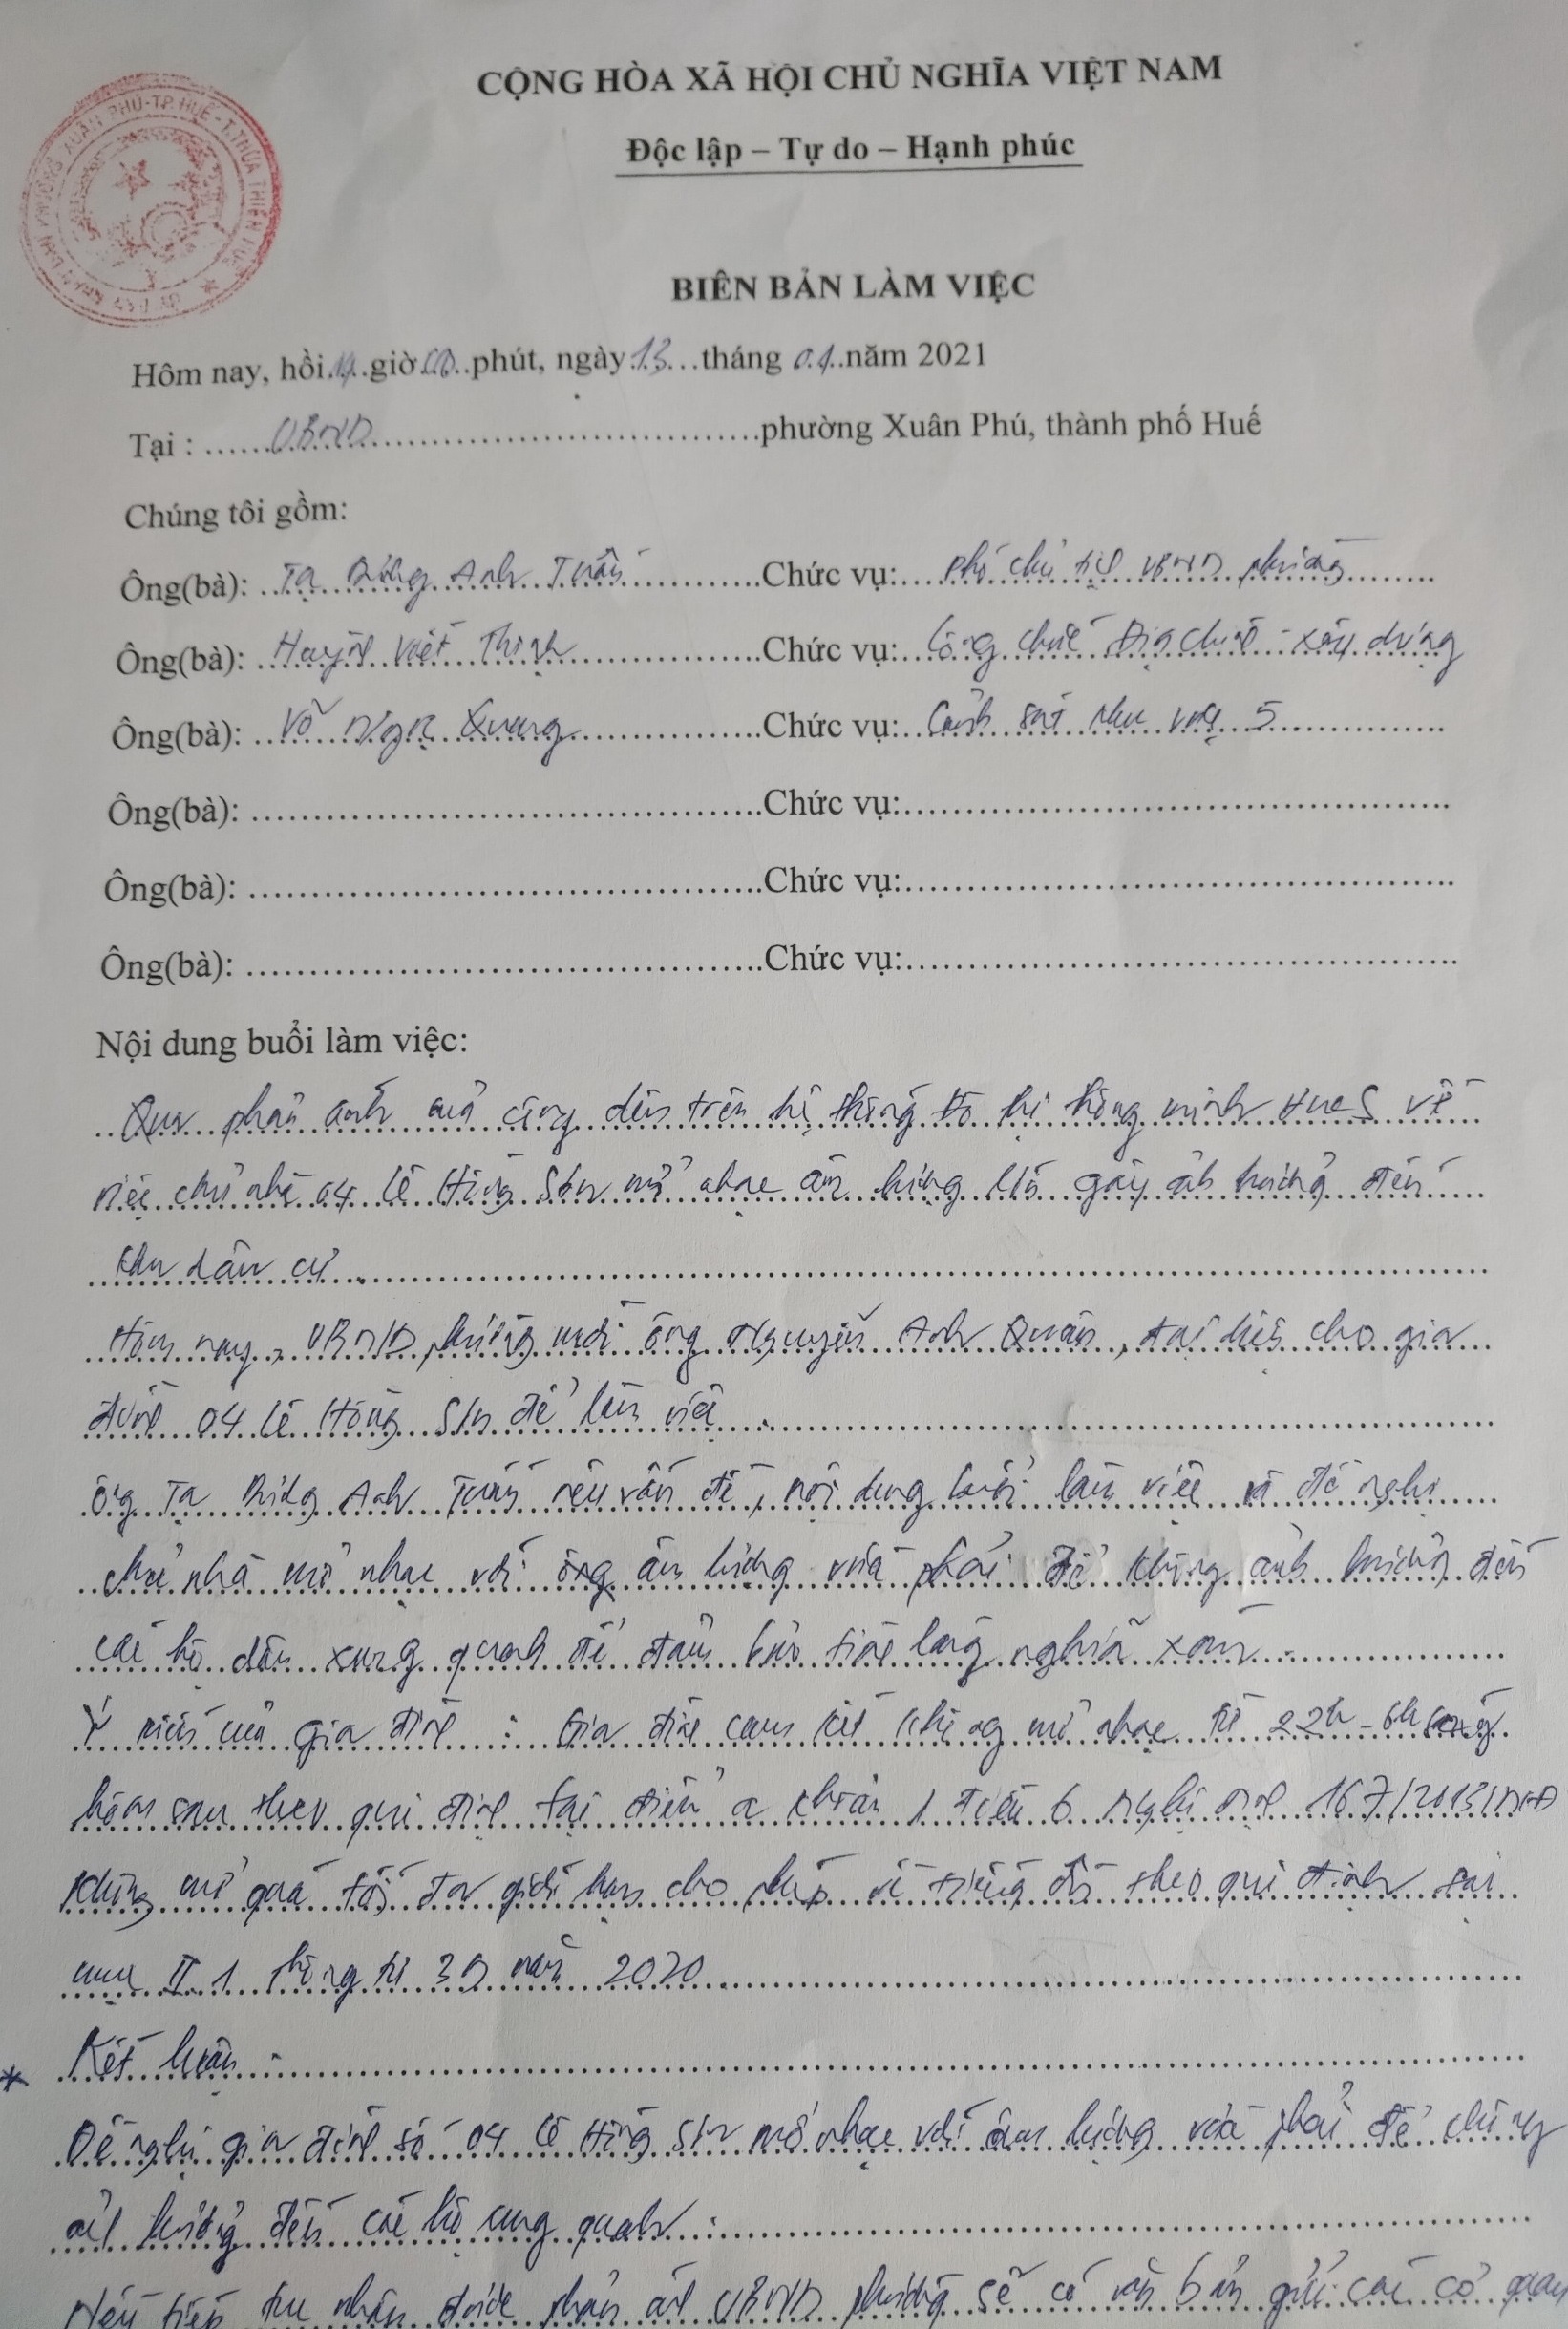 CỘNG HÒA XÃ HỘI CHỦ NGHĨA VIỆT NAM
Độc lập – Tự do – Hạnh phúc
BIÊN BẢN LÀM VIỆC
Hôm nay, hồi 14 giờ 00 phút, ngày 13 tháng 04 năm 2021
Tại : UBND phường Xuân Phú, thành phố Huế
Chúng tôi gồm:
Ông(bà): Tạ Anh Tuấn Chức vụ: Phó chủ tịch UBND phường
Ông(bà): Huỳnh Viết Thịnh Chức vụ: Công chức Địa chính - xây dựng
Ông(bà): Võ Ngọc Quang Chức vụ: Cảnh sát khu vực 5
Ông(bà): Chức vụ:
Ông(bà): Chức vụ:
Ông(bà): Chức vụ:
Nội dung buổi làm việc:
Qua phản ánh của công dân trên hệ thống đô thị thông minh Hue S về
việc chủ nhà 04 Lê Hồng Sơn mở nhạc âm lượng lớn gây ảnh hưởng đến
khu dân cư
Hôm nay, UBND phường mời ông Nguyễn Anh Quân, đại diện cho gia
đình 04 Lê Hồng Sơn để làm việc.
Ông Tạ Anh Tuấn nêu vấn đề, nội dung buổi làm việc và đề nghị
chủ nhà mở nhạc với âm lượng vừa phải để không ảnh hưởng đến
các hộ dân xung quanh để đảm bảo tình làng nghĩa xóm.
Ý kiến của gia đình : Gia đình cam kết không mở nhạc từ 22h - 6h sáng
hôm sau theo qui định tại điểm a khoản 1 điều 6 Nghị định 167/2013/NĐ
Không mở quá tối đa giới hạn cho phép về tiếng ồn theo qui định tại
mục II.1 thông tư 39 năm 2020
* Kết luận :
Đề nghị gia đình số 04 Lê Hồng Sơn mở nhạc với âm lượng vừa phải để không
ảnh hưởng đến các hộ xung quanh.
Nếu tiếp tục nhận được phản ánh UBND phường sẽ có văn bản gửi các cơ quan